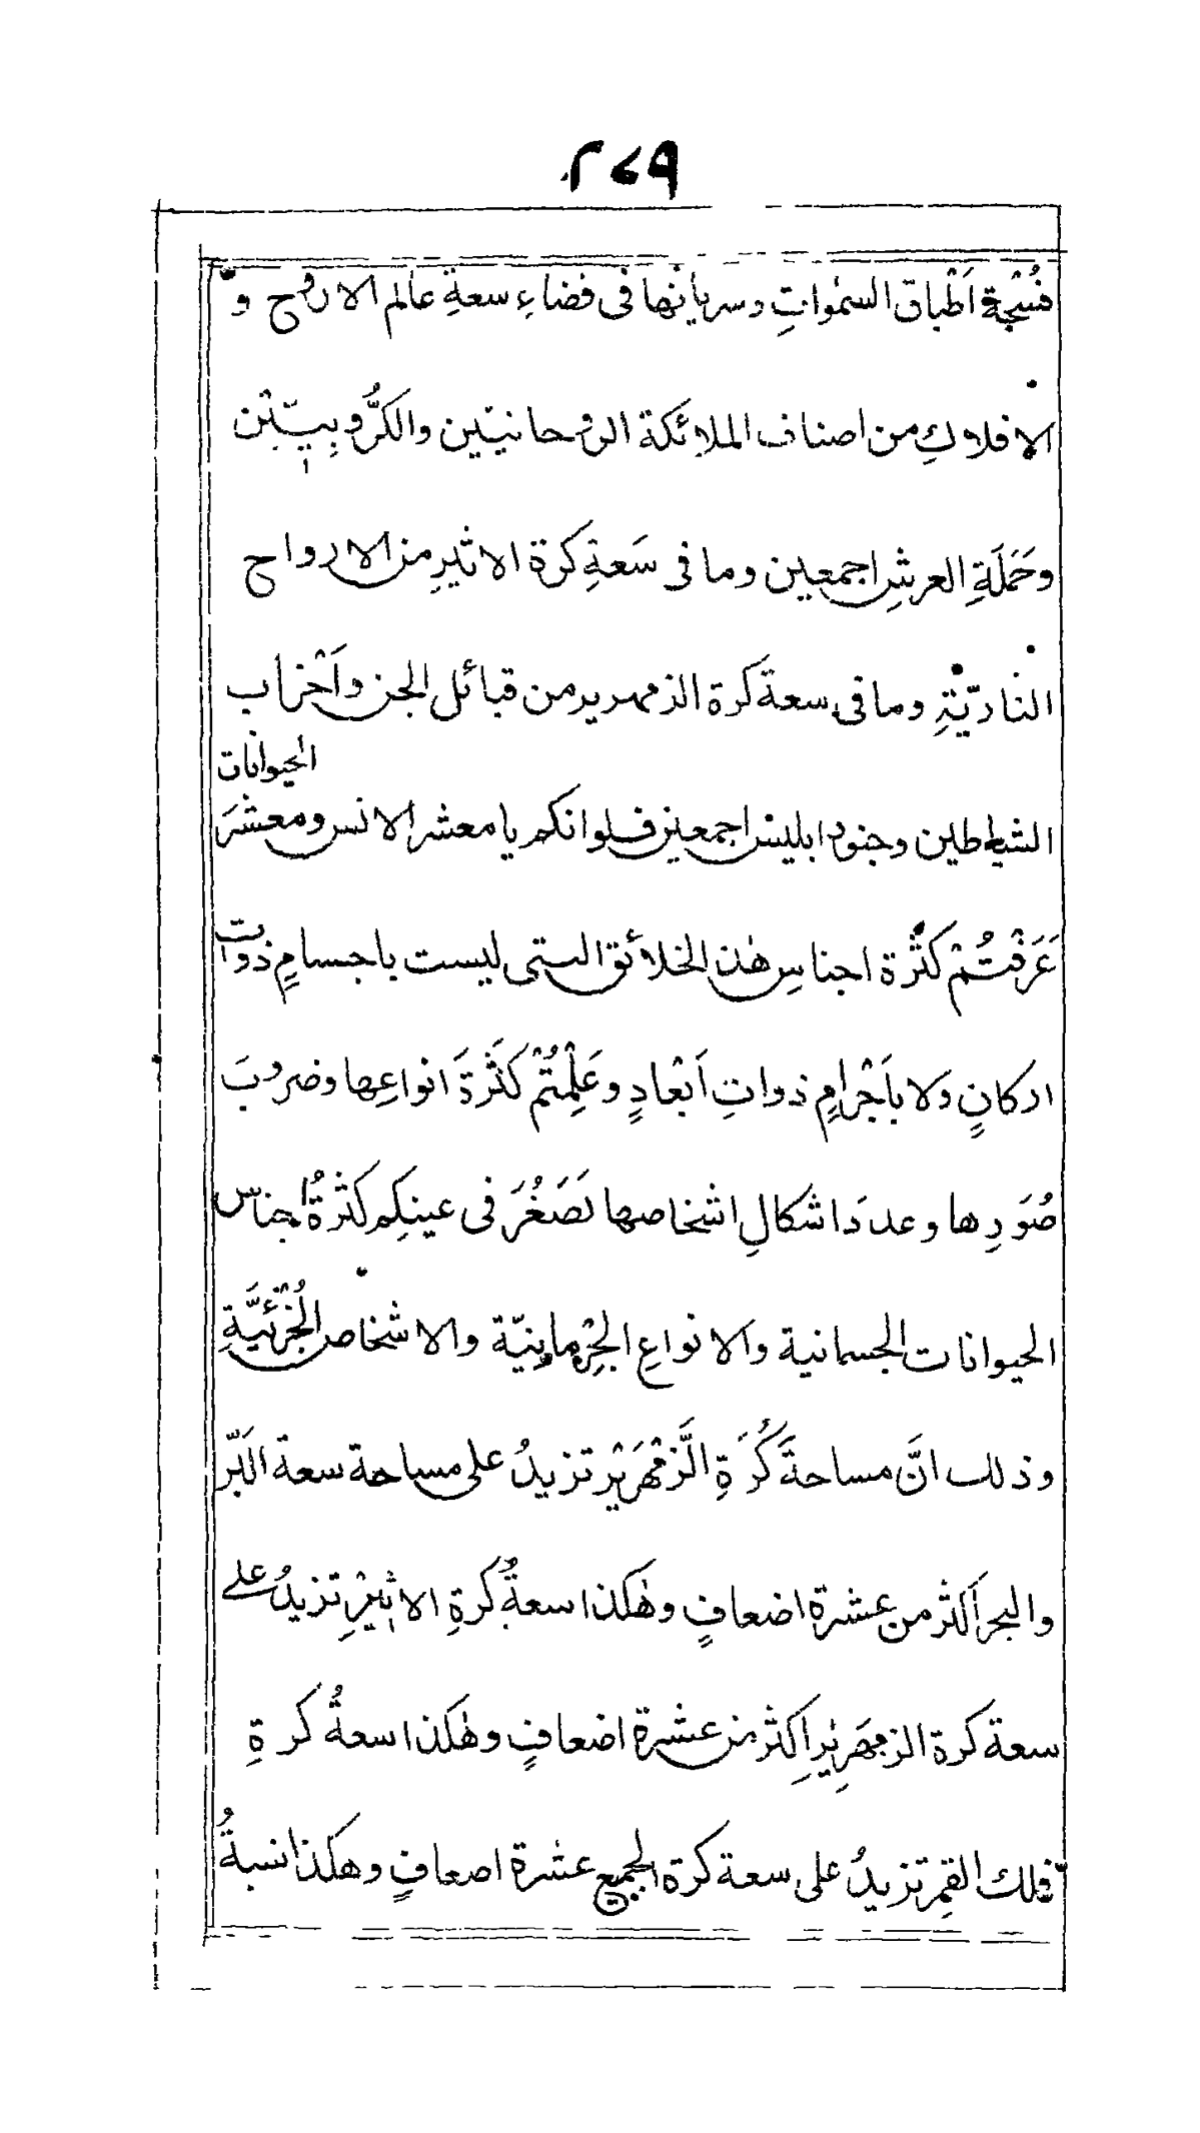 ٢٧٩
فُسْحة اَطْباق السمٰواتِ وسريانها فى فضاءِ سعةِ عالم الاروح و
الافلاكِ من اصناف الملائكة الروحانيّين والكرُّوبِيّيْن
وحَمَلَةِ العرشِ اجمعين وما فى سَعةِ كرة الاثيرِ من الارواح
الناريّةِ وما فى سعة كرة الزمهرير من قبائل الجن واَحْزاب
الحيوانات
الشياطين وجنود ابليس اجمعين فلو انكم يا معشر الانس ومعشرَ
عَرَفْتُمْ كثْرة اجناسِ هٰذه الخلائق التى ليست باجسامٍ ذوات
اركانٍ ولا باَجْرامٍ ذواتِ اَبْعادٍ وعَلِمْتُمْ كَثْرةَ انواعِها وضروبَ
صُوَرِها وعددَ اشكالِ اشخاصها لصَغُرَ فى عينِكم كثْرةُ اجناس
الحيوانات الجسمانية والانواعِ الجِرْمانِيّة والاشخاص الجُزْئيَّةِ
وذلك انَّ مساحةَ كُرَةِ الزَّمْهَرِيْر تزيدُ على مساحة سعة البَرّ
والبحر اكثر من عشرة اضعافٍ وهٰكذا سعةُ كرةِ الاثيْرِ تزيدُ على
سعة كرة الزمهَرِيْر اكثر من عشرة اضعافٍ وهٰكذا سعةُ كرةِ
فلك القمرِ تزيدُ على سعة كرة الجميع عشرة اضعافٍ وهكذا نسبةُ